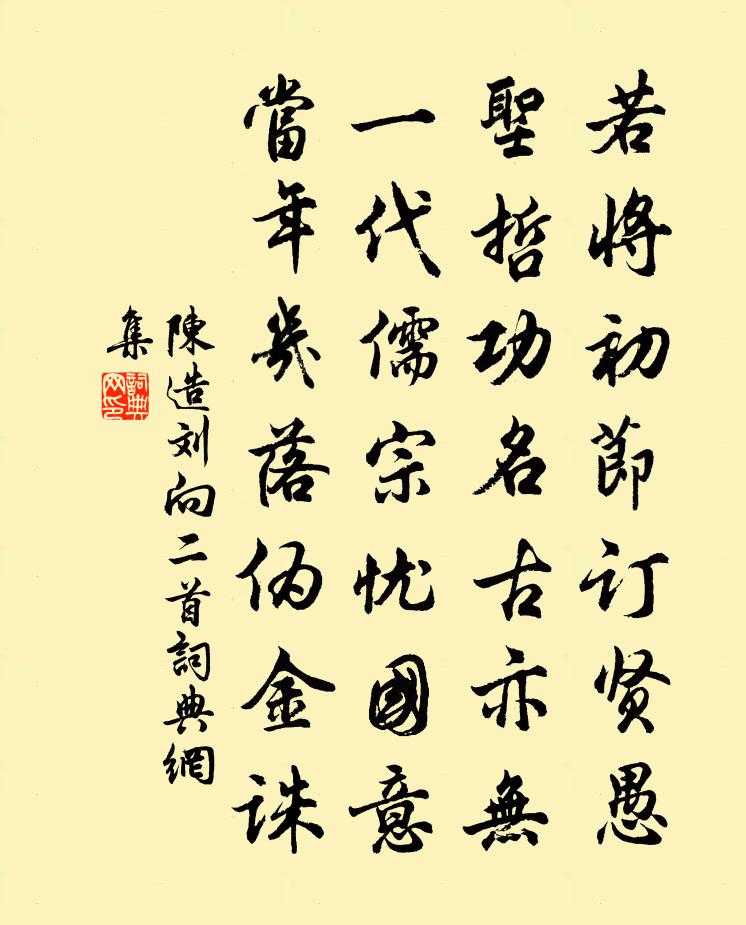 若将初節订贤愚
聖哲功名古亦無
一代儒宗忧國意
當年幾落伪金诛
陳造刘向二首詞典網
集
詞典网印